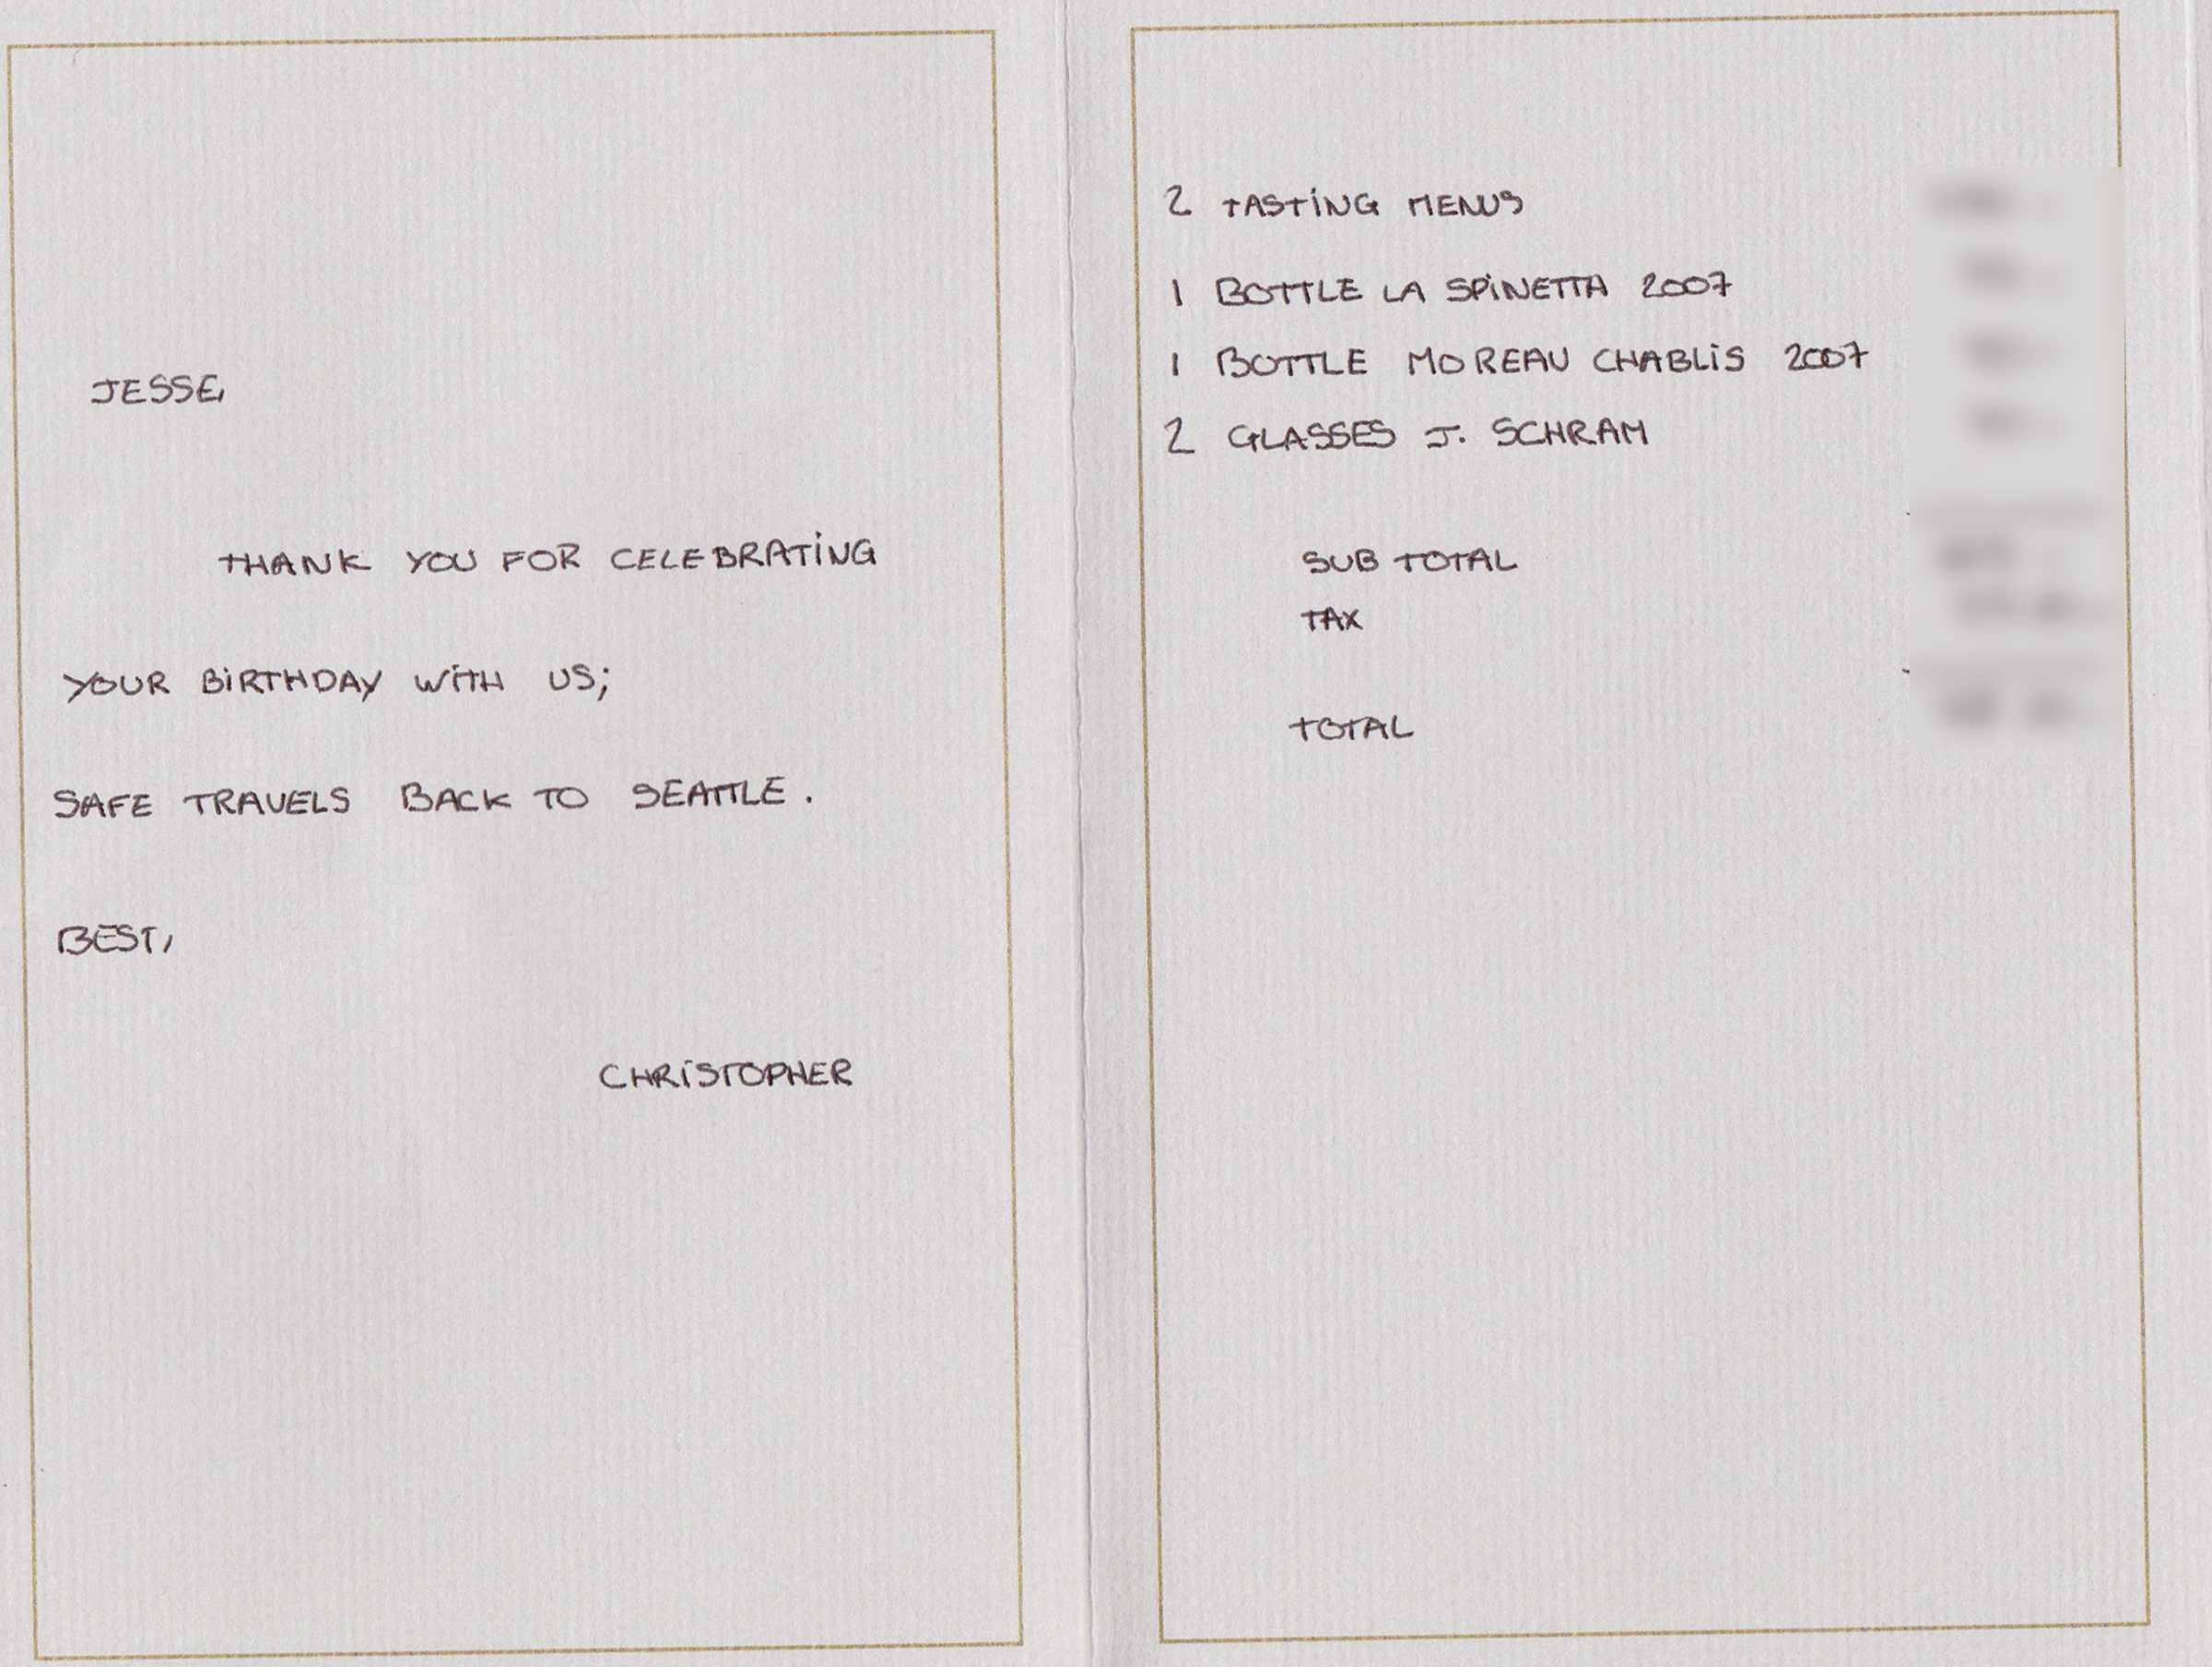 JESSE,
THANK YOU FOR CELEBRATING
YOUR BIRTHDAY WITH US;
SAFE TRAVELS BACK TO SEATTLE.
BEST,
CHRISTOPHER
2 TASTING MENUS
1 BOTTLE LA SPINETTA 2007
1 BOTTLE MOREAU CHABLIS 2007
2 GLASSES J. SCHRAM
SUB TOTAL
TAX
TOTAL